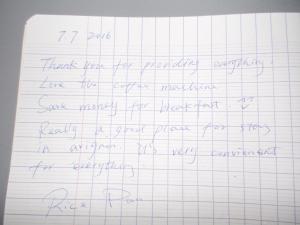 7.7 2016
Thank you for providing everything.
Love the coffee machine
Save money for breakfast.
Really a good place for stay
in avignon. It's very convenient
for everything.